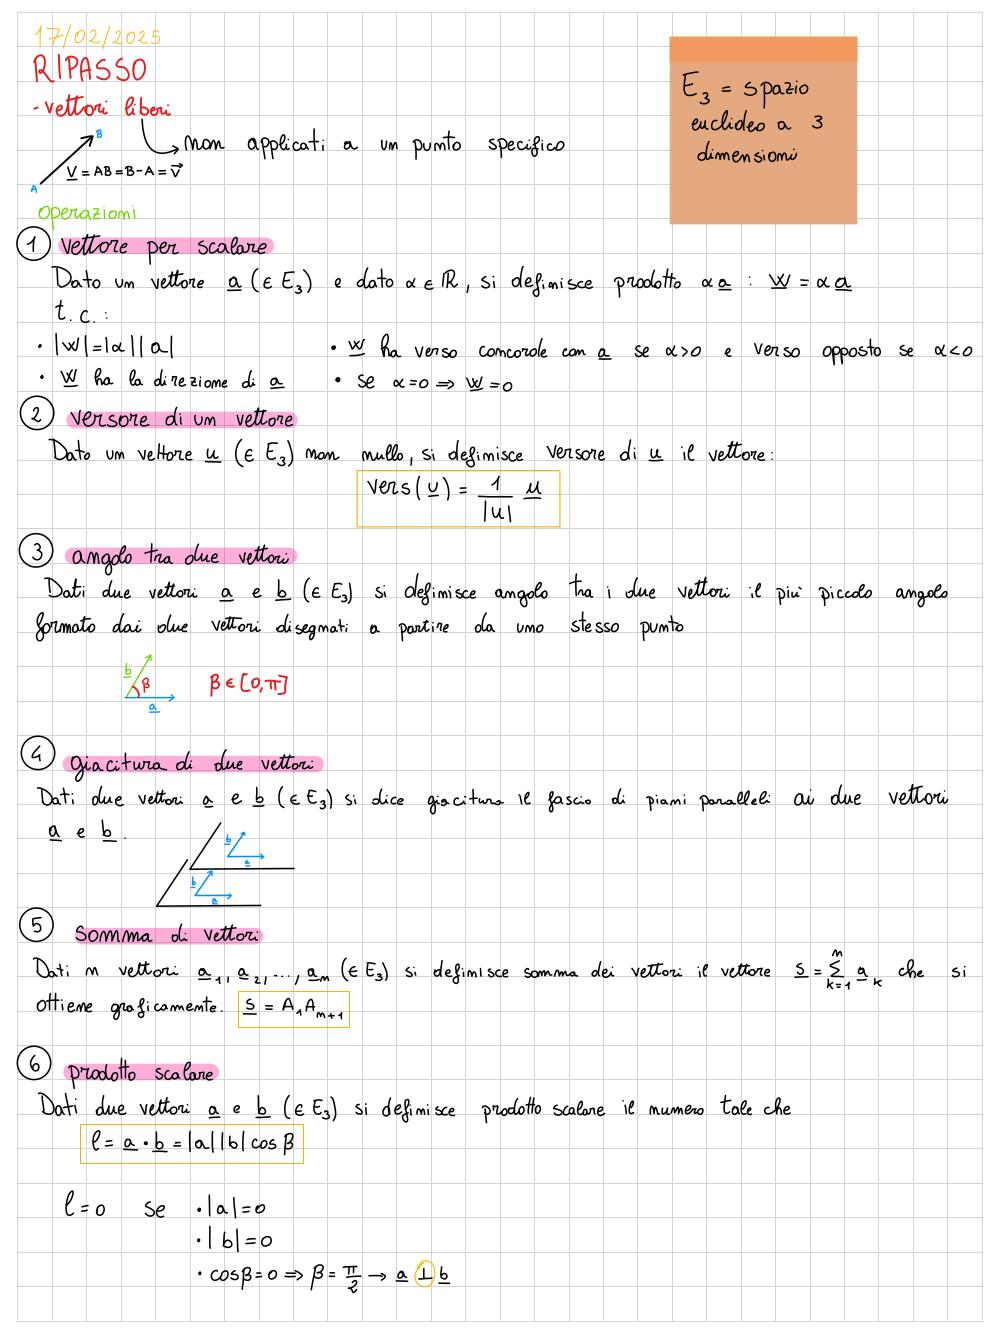 17/02/2025
RIPASSO
- vettori liberi
E₃ = spazio
euclideo a 3
dimensioni
non applicati a un punto specifico
B
A
v = AB = B - A = v⃗
operazioni
1 vettore per scalare
Dato un vettore a (∈ E₃) e dato α ∈ ℝ, si definisce prodotto αa : w = αa
t.c.:
• |w| = |α||a|
• w ha verso concorde con a se α>0 e verso opposto se α<0
• w ha la direzione di a
• se α=0 ⇒ w=0
2 versore di un vettore
Dato un vettore u (∈ E₃) non nullo, si definisce versore di u il vettore:
vers(u) = 1/|u| u
3 angolo tra due vettori
Dati due vettori a e b (∈ E₃) si definisce angolo tra i due vettori il più piccolo angolo
formato dai due vettori disegnati a partire da uno stesso punto
b
β
a
β ∈ [0,π]
4 giacitura di due vettori
Dati due vettori a e b (∈ E₃) si dice giacitura il fascio di piani paralleli ai due vettori
a e b.
b
a
b
a
5 somma di vettori
Dati n vettori a₁, a₂, ..., aₙ (∈ E₃) si definisce somma dei vettori il vettore s = ∑ₖ₌₁ⁿ aₖ che si
ottiene graficamente. s = A₁Aₙ₊₁
6 prodotto scalare
Dati due vettori a e b (∈ E₃) si definisce prodotto scalare il numero tale che
l = a · b = |a||b| cos β
l = 0 se • |a|=0
• |b|=0
• cosβ=0 ⇒ β = π/2 → a ⊥ b